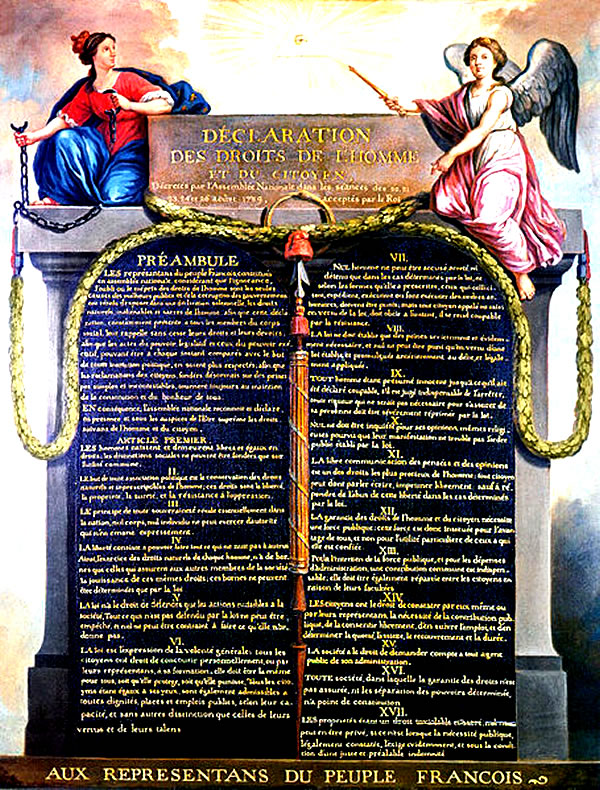 DÉCLARATION
DES DROITS DE L'HOMME
ET DU CITOYEN,
Décrétés par l'Assemblée Nationale dans les séances des 20, 21
23, 24 et 26 août 1789, acceptés par le Roi
PRÉAMBULE
LES représentans du peuple François, constitués
en assemblée nationale, considérant que l'ignorance,
l'oubli ou le mépris des droits de l'homme sont les seules
causes des malheurs publics et de la corruption des gouvernemens
ont résolu d'exposer dans une déclaration solemnelle, les droits
naturels, inaliénables et sacrés de l'homme, afin que cette décla-
ration, constamment présente à tous les membres du corps
social, leur rappelle sans cesse leurs droits et leurs devoirs;
afin que les actes du pouvoir législatif et ceux du pouvoir exé-
cutif, pouvant être à chaque instant comparés avec le but
de toute institution politique, en soient plus respectés; afin que
les réclamations des citoyens, fondées désormais sur des princi-
pes simples et incontestables, tournent toujours au maintien
de la constitution et du bonheur de tous.
EN conséquence, l'assemblée nationale reconnoit et déclare,
en présence et sous les auspices de l'Être suprême les droits
suivans de l'homme et du citoyen.
ARTICLE PREMIER.
LES hommes naissent et demeurent libres et égaux en
droits; les distinctions sociales ne peuvent être fondées que sur
l'utilité commune.
II.
LE but de toute association politique est la conservation des droits
naturels et imprescriptibles de l'homme; ces droits sont la liberté,
la propriété, la sureté, et la résistance à l'oppression.
III.
LE principe de toute souveraineté réside essentiellement dans
la nation, nul corps, nul individu ne peut exercer d'autorité
qui n'en émane expressément.
IV.
LA liberté consiste à pouvoir faire tout ce qui ne nuit pas à autrui
Ainsi, l'exercice des droits naturels de chaque homme, n'a de bor-
nes que celles qui assurent aux autres membres de la société
la jouissance de ces mêmes droits; ces bornes ne peuvent
être déterminées que par la loi
V.
LA loi n'a le droit de défendre que les actions nuisibles à la
société. Tout ce qui n'est pas défendu par la loi ne peut être
empêché, et nul ne peut être contraint à faire ce qu'elle n'or-
donne pas.
VI.
LA loi est l'expression de la volonté générale; tous les
citoyens ont droit de concourir personnellement, ou par
leurs représentans, à sa formation; elle doit être la même
pour tous, soit qu'elle protege, soit qu'elle punisse. Tous les cito-
yens étant égaux à ses yeux, sont également admissibles à
toutes dignités, places et emplois publics, selon leur ca-
pacité, et sans autres distinction que celles de leurs
vertus et de leurs talens
VII.
NUL homme ne peut être accusé, arreté, ni
détenu que dans les cas déterminés par la loi, et
selon les formes qu'elle a prescrites, ceux qui sollici-
tent, expédient, exécutent ou font exécuter des ordres ar-
bitraires, doivent être punis; mais tout citoyen appelé ou saisi
en vertu de la loi, doit obéir à l'instant, il se rend coupable
par la résistance.
VIII.
LA loi ne doit établir que des peines strictement et évidem-
ment nécessaires, et nul ne peut être puni qu'en vertu d'une
loi établie, et promulguée antérieurement au délit, et légale-
ment appliquée.
IX.
TOUT homme étant présumé innocent jusqu'à ce qu'il ait
été déclaré coupable, s'il est jugé indispensable de l'arrêter,
toute rigueur qui ne seroit pas nécessaire pour s'assurer de
sa personne doit être sévèrement réprimée par la loi.
X.
NUL ne doit être inquiété pour ses opinions, mêmes religi-
euses pourvu que leur manifestation ne trouble pas l'ordre
public établi par la loi.
XI.
LA libre communication des pensées et des opinions
est un des droits les plus précieux de l'homme; tout citoyen
peut donc parler, écrire, imprimer librement, sauf à ré-
pondre de l'abus de cette liberté dans les cas déterminés
par la loi.
XII.
LA garantie des droits de l'homme et du citoyen nécessite
une force publique; cette force est donc instituée pour l'avan-
tage de tous, et non pour l'utilité particuliere de ceux à qui
elle est confiée.
XIII.
Pour l'entretien de la force publique, et pour les dépenses
d'administration, une contribution commune est indispen-
sable; elle doit être également répartie entre les citoyens en
raison de leurs facultés
XIV.
LES citoyens ont le droit de constater par eux même ou
par leurs représentans, la nécessité de la contribution pub-
lique, de la consentir librement, d'en suivre l'emploi, et d'en
déterminer la quotité, l'assiette, le recouvrement et la durée.
XV.
LA société a le droit de demander compte à tout agent
public de son administration.
XVI.
TOUTE société, dans laquelle la garantie des droits n'est
pas assurée, ni les séparation des pouvoirs déterminée,
n'a point de constitution
XVII.
LES propriétés étant un droit inviolable et sacré, nul ne
peut en être privé, si ce n'est lorsque la nécessité publique,
légalement constatée, l'exige évidemment, et sous la condi-
tion d'une juste et préalable indemnité
AUX REPRESENTANS DU PEUPLE FRANCOIS